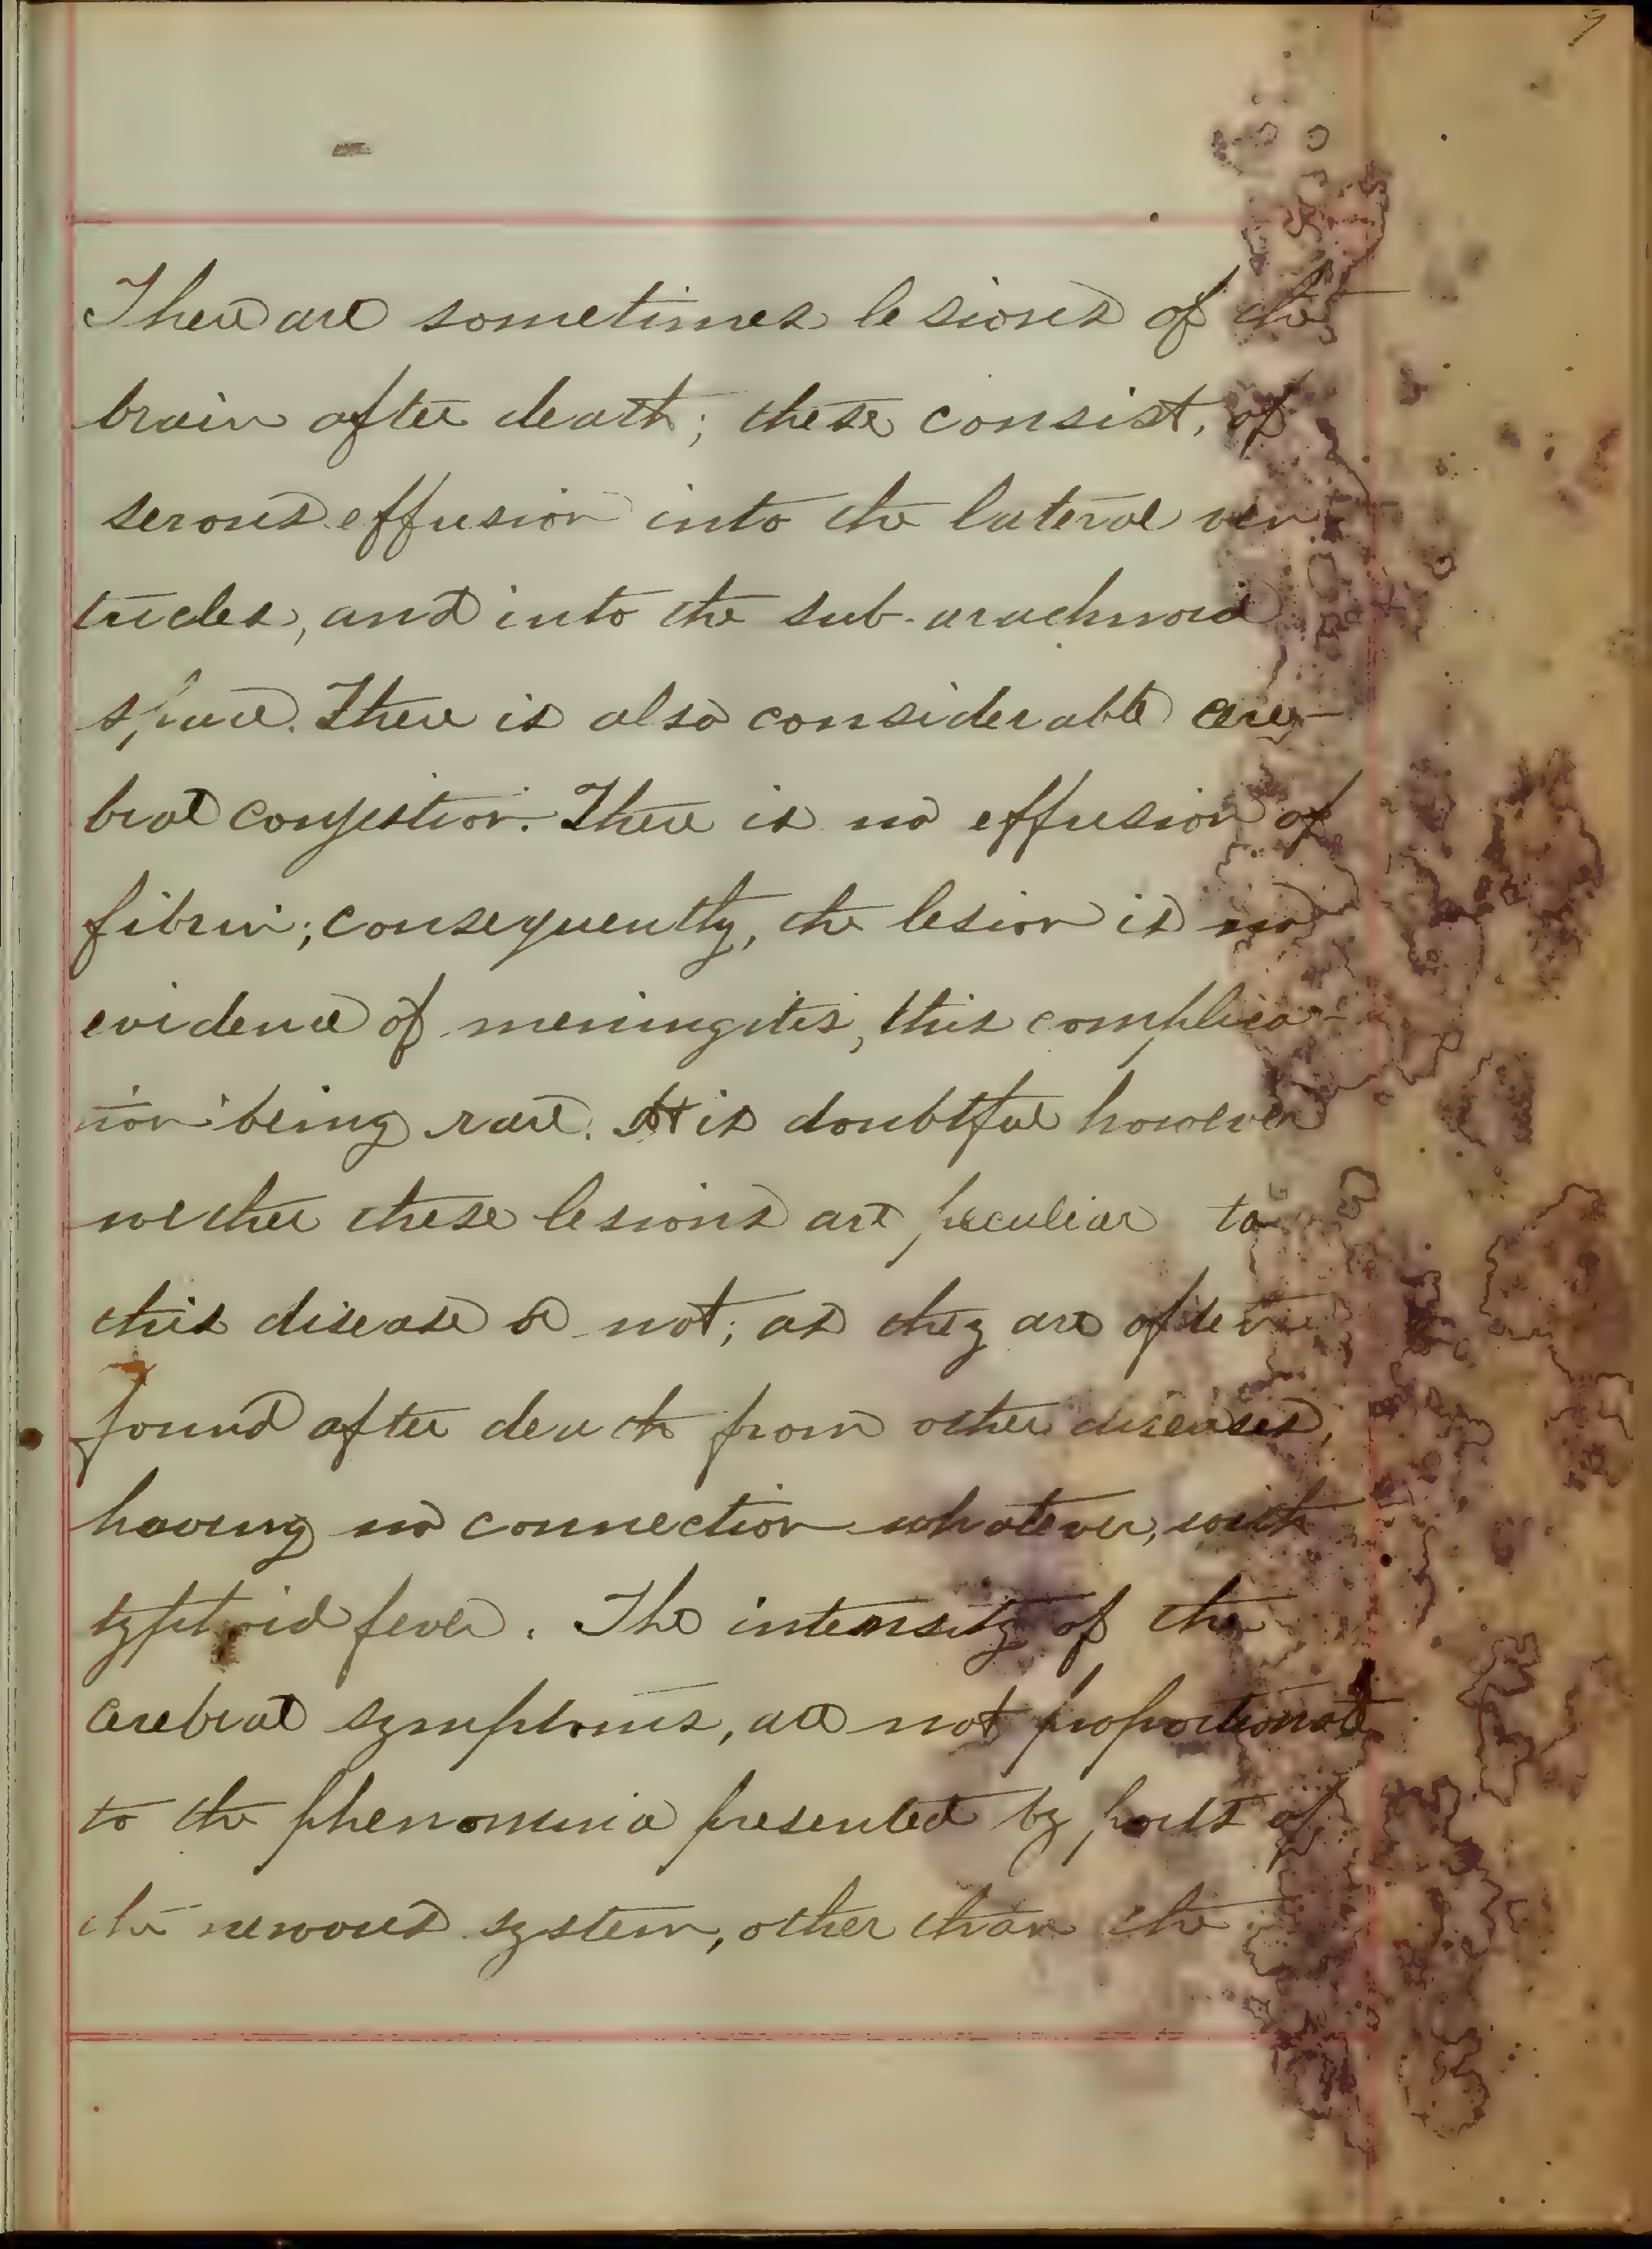 9
There are sometimes lesions of the
brain after death; these consist, of
serous effusion into the lateral ven
tricles, and into the sub-arachnoid
space. There is also considerable cere-
bral congestion. There is no effusion of
fibrin; consequently, the lesion is no
evidence of meningitis, this complica-
tion being rare. It is doubtful however
wether these lesions are peculiar to
this disease or not; as they are often
found after death from other diseases,
having no connection whatever, with
typhoid fever. The intensity of the
cerebral symptoms, are not proportionate
to the phenominia presented by parts of
the nervous system, other than the